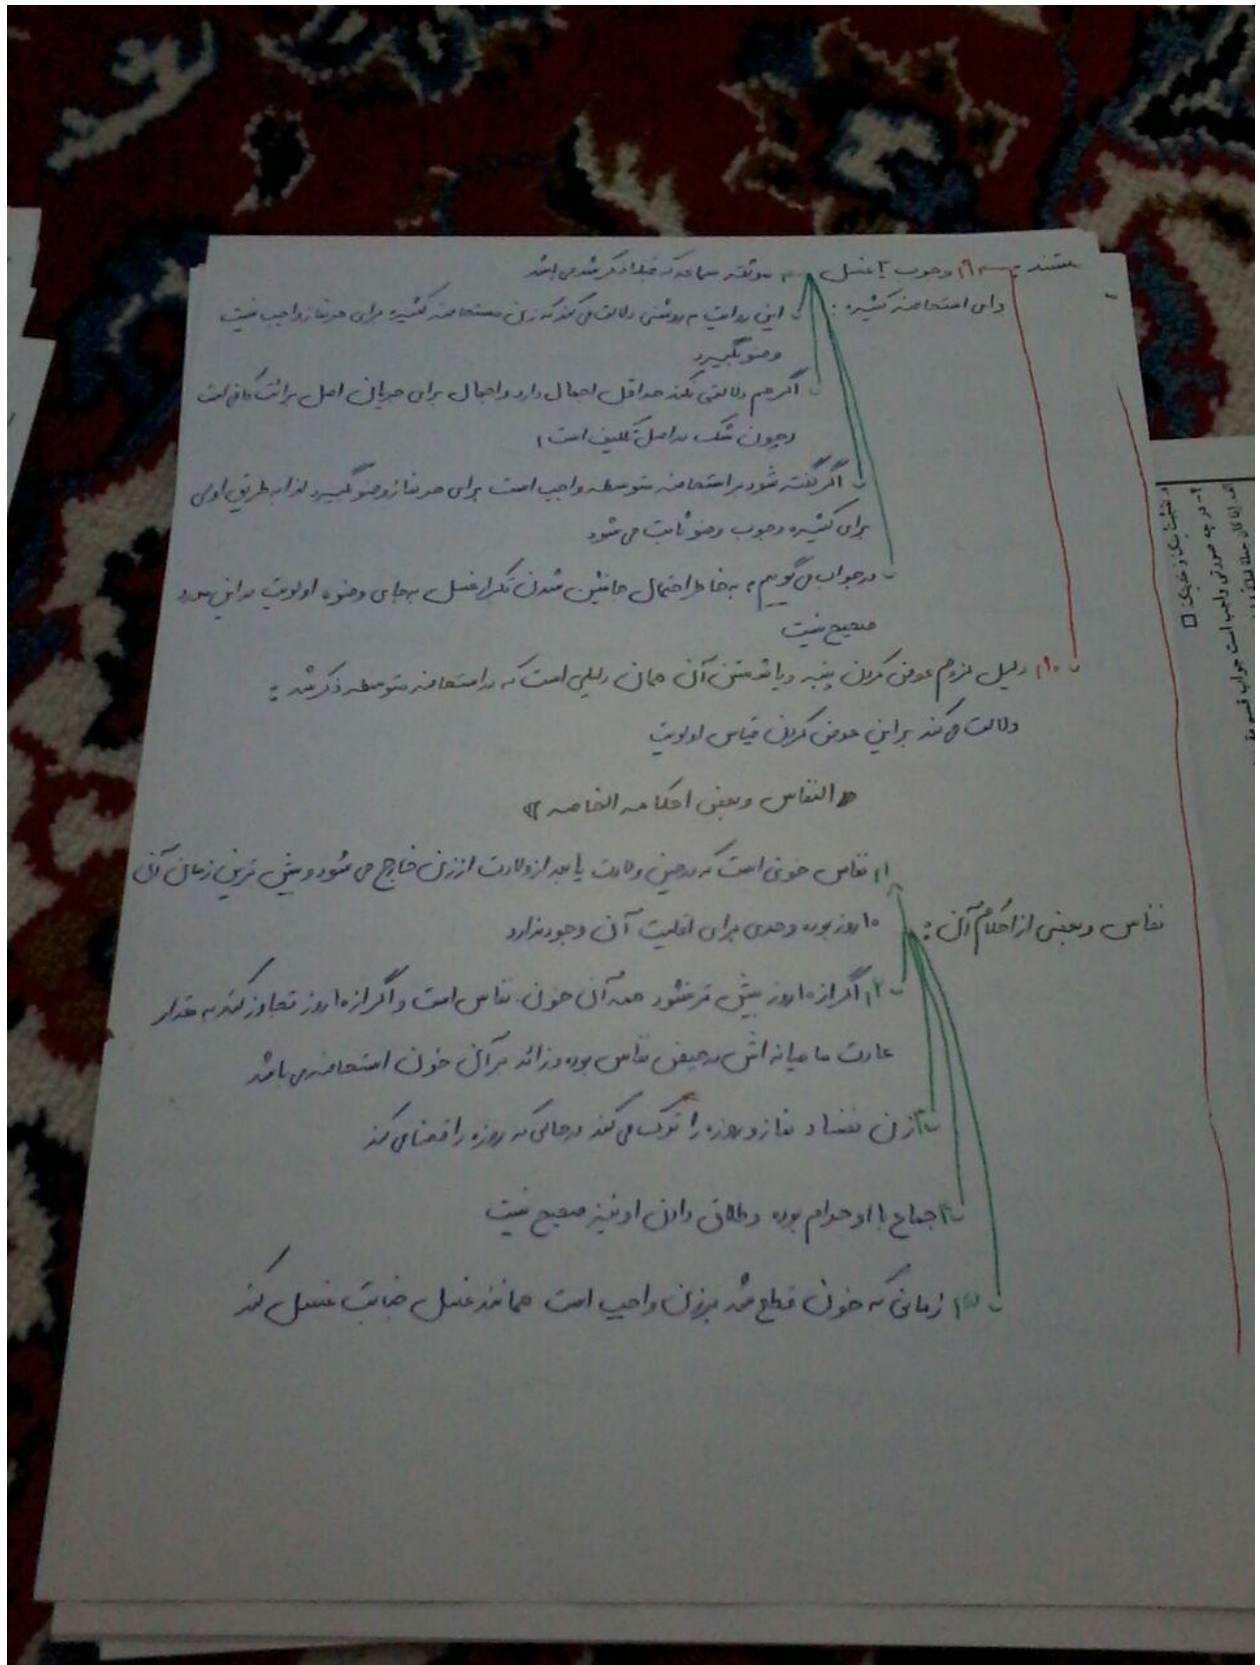 مستند: ۹) وجوب ۳ غسل ← موثقه سماعه که قبلا ذکر شد می باشد
برای استحاضه کثیره:
این روایت به روشنی دلالت می کند که زن مستحاضه کثیره برای هر نماز واجب نیست
وضو بگیرد
اگر هم دلالتی نکند حداقل اجمال دارد و اجمال برای جریان اصل برائت کافی است
(چون شک در اصل تکلیف است)
اگر گفته شود در استحاضه متوسطه واجب است برای هر نماز وضو بگیرد لذا به طریق اولی
برای کثیره وجوب وضو ثابت می شود
در جواب می گوییم: به خاطر احتمال جانشین شدن تکرار غسل به جای وضو، اولویت در این مورد
صحیح نیست
۱۰) دلیل لزوم عوض کردن پنبه و یا شستن آن همان دلیلی است که در استحاضه متوسطه ذکر شد:
دلالت می کند بر این عوض کردن قیاس اولویت
«النفاس و بعض احکامه الخاصه»
۱) نفاس خونی است که در حین ولادت یا بعد از ولادت از زن خارج می شود و بیش ترین زمان آن
نفاس و بعضی از احکام آن:
۱۰ روز بوده و حدی برای اقلیت آن وجود ندارد
۲) اگر از ۱۰ روز بیش تر نشود همه آن خون، نفاس است و اگر از ۱۰ روز تجاوز کند به مقدار
عادت ماهیانه اش در حیض نفاس بوده و زائد بر آن خون استحاضه می باشد
۳) زن نفساء نماز و روزه را ترک می کند در حالی که روزه را قضا می کند
۴) جماع با او حرام بوده و طلاق دادن او نیز صحیح نیست
۵) زمانی که خون قطع شد بر زن واجب است همانند غسل جنابت غسل کند
۲- در چه صورتی واجب است جواب قسم